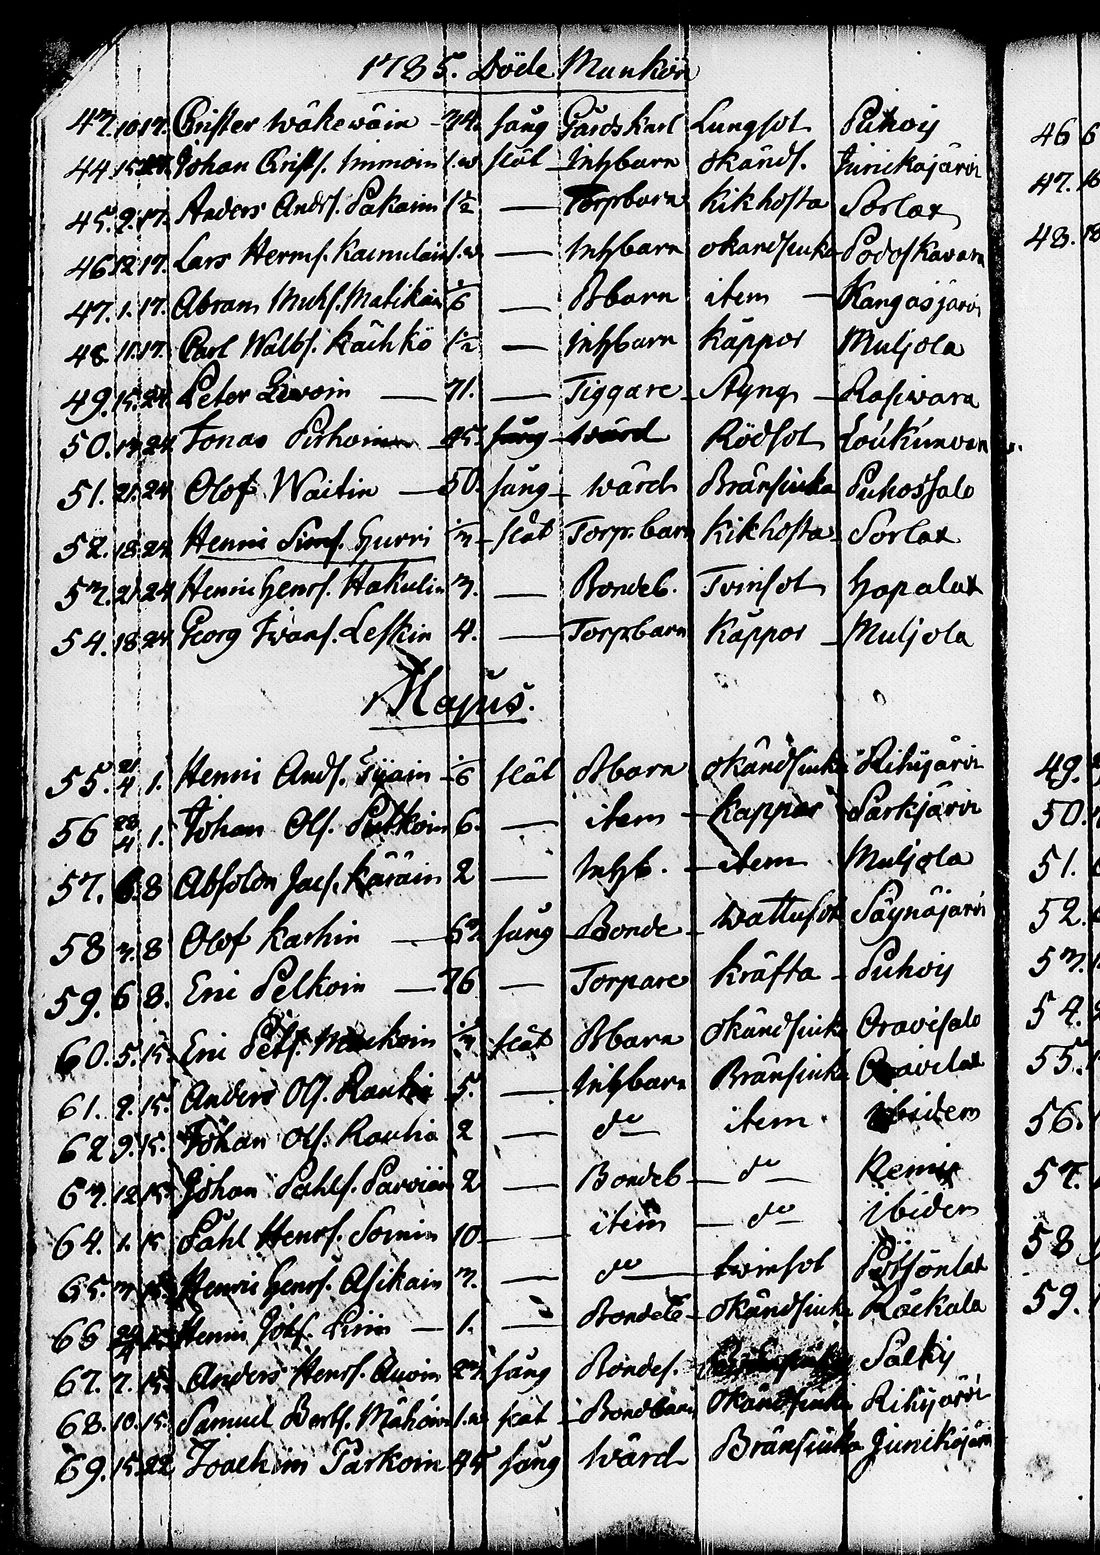 1785. Döde Mankön
43. 10 17. Christer Wäkewäin 74. sång Gårds karl Lungsot Puhois
44. 15 Johan Christ. Immoin 1.w slät Inhbarn okänds. Junikajärvi
45. 9. 17. Anders Andś. Pakain 1½ — Torpbarn Kikhosta Sorlax
46 12 17. Lars Hermś. 1.w — Inhbarn okandsiuka Podoskavara
47. 1. 17. Abram Matikain ⅙ — Bbarn item — Kangasjärvi
48 11 17. Carl Walbś. Kächkö ½ — Inhbarn Kåppor Muljola
49. 15. 24 Peter — 71. — Tiggare Styng Rasivara
50. 24 Jonas 45. sång wärd Rödsot Loukunvara
51. 21. 24 Olof Waitin — 50. sång wärd Bränsiuka Puhossalo
52. 18. 24 Henric Simś. Hurri slät Torp. barn Kikhosta Sorlax
53. 21 24 Henric Henrś. Hakulin 3. — Bondeb. Tvinsot Hopalax
54. 18 24 Georg Iwanś. Leskin 4. — Torpbarn Kåppor Muljola
Majus.
55. 21/4 1. Henric Andś. ⅙ slät Bbarn okändsiuka Rihijärvi
56 28/4 1. Johan Olś. Putkoin 6. — item Kappor Särkjärvi
57. 6. 8 Absolon Jacś. Käräin 2 — Inhb. item Muljola
58 3. 8 Olof Karhin — sång Bonde Wattusot Säynäjärvi
59. 6 8. Eric Pelkoin — 76 — Torpare kräfta Puhois
60. 5. 15. Eric Petś. slät Bbarn Okändsiuk Oravisalo
61. 9. 15. Anders Olś. Rautia 5. — Inhbarn Bränsiuka Oravilax
62 9. 15. Johan Olś. Rautia 2 — do item ibidem
63. 12 15. Johan Påhlś. 2 — Bondeb — do Kemis
64. 1. 15 Påhl Henrś. Sormin 10 — item — do Ibidem
65. 3. 15. Henric Henrś. Asikain 3. — do — twinsot Pötsönlax
66 Henric — 1. — Bondeb okändsiuka Räckala
67. 7. 15. Anders Henrś. 23 sång Bondes. Salkis
68. 10. 15. Samuel Bertś. Mähöin 1.w slat Bondbarn Okändsiuka Rihijärvi
69. 15. 22 Joachim Parkoin 45 sång Wärd Bränsiuka Junikajärvi
46 6
47. 16
48. 18
49.
50.
51.
52.
53.
54.
55.
56.
57.
58
59.